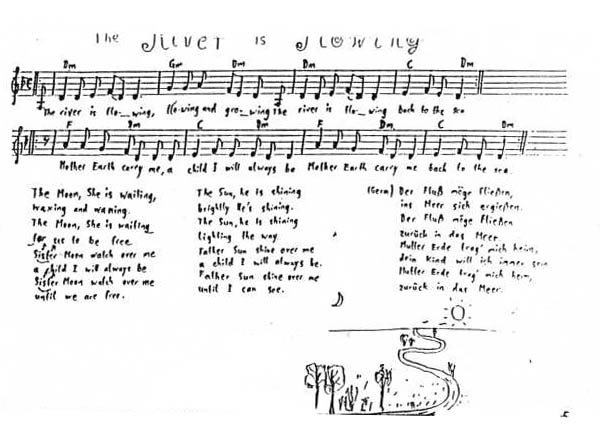 The River is Flowing
Dm Gm Dm Dm C Dm
The river is flo-_wing, flo-wing and gro-_wing the river is flo-_wing back to the sea
F Dm C Dm F Dm C Dm
Mother Earth carry me, a child I will always be Mother Earth carry me back to the sea.
The Moon, She is Waiting,
waxing and waning.
The Moon, She is waiting
for us to be free
Sister Moon watch over me
a child I will always be
Sister Moon watch over me
until we are free.
The Sun, he is shining
brightly He's shining.
The Sun, he is shining
lighting the way.
Father Sun shine over me
a child I will always be.
Father Sun shine over me
until I can see.
(Germ) Der Fluß möge fließen,
ins Meer sich ergießen.
Der Fluß möge fließen
zurück in das Meer.
Mutter Erde trag' mich heim,
dein Kind will ich immer sein
Mutter Erde trag' mich heim,
zurück in das Meer.
5